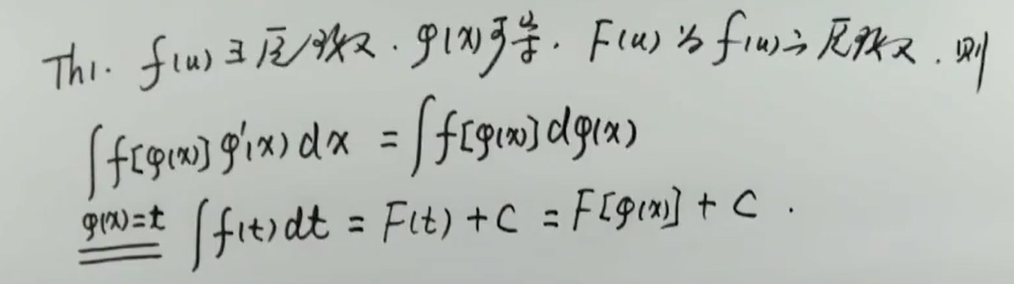 Th1. f(u)∃原函数. φ(x)可导. F(u)为f(u)之原函数. 则
∫f[φ(x)]φ'(x)dx = ∫f[φ(x)]dφ(x)
φ(x)=t ∫f(t)dt = F(t)+C = F[φ(x)]+C.